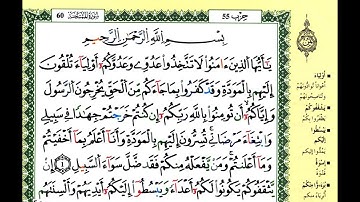 60 سُورَةُ المُمْتَحنَة
حِزب 55
بِسْمِ اللَّهِ الرَّحْمَٰنِ الرَّحِيمِ
يَٰٓأَيُّهَا ٱلَّذِينَ ءَامَنُواْ لَا تَتَّخِذُواْ عَدُوِّے وَعَدُوَّكُمُۥٓ أَوْلِيَآءَ تُلْقُونَ
إِلَيْهِم بِالْمَوَدَّةِ وَقَدْ كَفَرُواْ بِمَا جَآءَكُم مِّنَ ٱلْحَقِّ يُخْرِجُونَ ٱلرَّسُولَ
وَإِيَّاكُمُۥٓ أَن تُومِنُواْ بِاللَّهِ رَبِّكُمُۥٓ إِن كُنتُمْ خَرَجْتُمْ جِهَٰدًا فِے سَبِيلِے
وَابْتِغَآءَ مَرْضَاتِے تُسِرُّونَ إِلَيْهِم بِالْمَوَدَّةِ وَأَنَا أَعْلَمُ بِمَآ أَخْفَيْتُمْ
وَمَآ أَعْلَنتُمْ وَمَن يَفْعَلْهُ مِنكُمْ فَقَد ضَّلَّ سَوَآءَ ٱلسَّبِيلِ 1 إِنْ
يَثْقَفُوكُمْ يَكُونُواْ لَكُمُۥٓ أَعْدَآءً وَيَبْسُطُوٓاْ إِلَيْكُمُۥٓ أَيْدِيَهُمْ وَأَلْسِنَتَهُم
أَوْلِيَاءَ
يَثْقَفُوكُمْ
يَبْسُطُوا
إِلَيْكُمْ